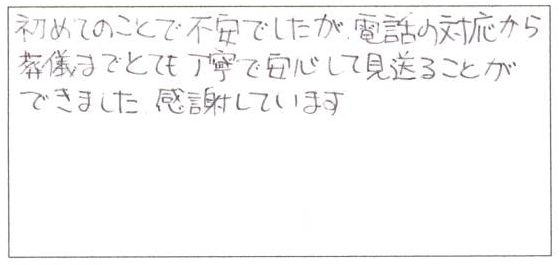 初めてのことで不安でしたが、電話の対応から
葬儀までとても丁寧で安心して見送ることが
できました 感謝しています